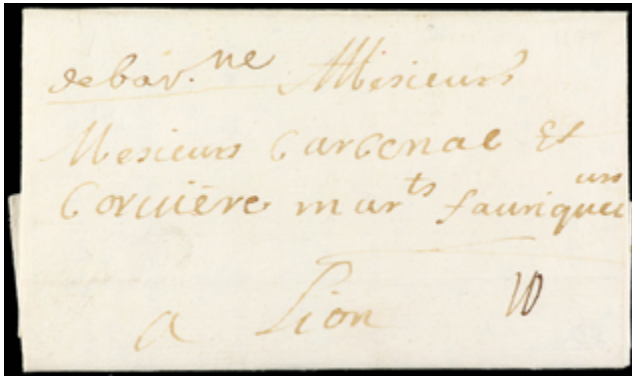 debay.ne Messieurs
Mesieurs Carcenac Et
Corviere mar.ts fauriqueurs
a Lion 10